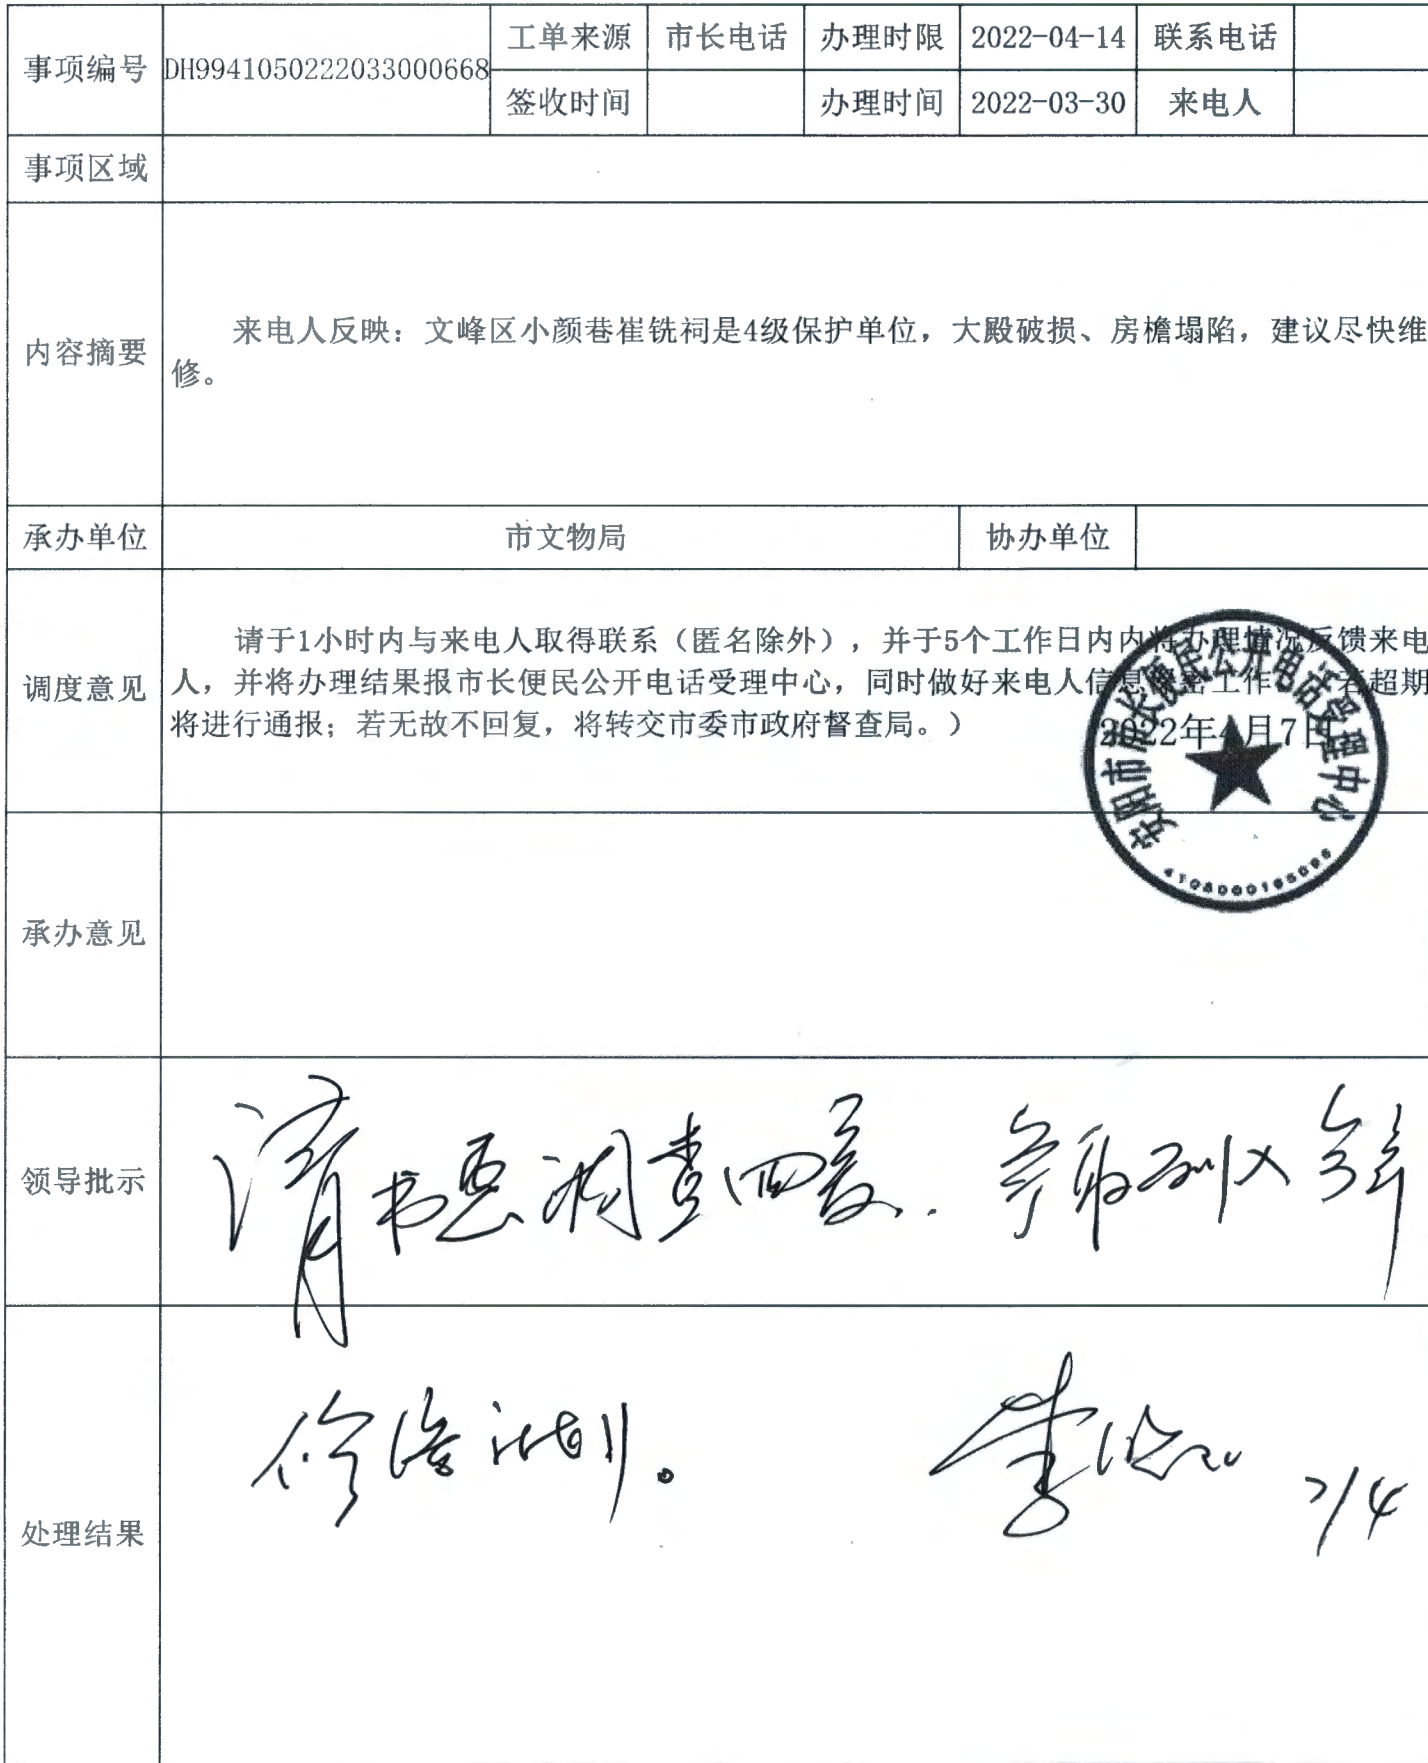 事项编号 DH9941050222033000668 工单来源 市长电话 办理时限 2022-04-14 联系电话
签收时间 办理时间 2022-03-30 来电人
事项区域
内容摘要
来电人反映：文峰区小颜巷崔铣祠是4级保护单位，大殿破损、房檐塌陷，建议尽快维
修。
承办单位 市文物局 协办单位
调度意见
请于1小时内与来电人取得联系（匿名除外），并于5个工作日内内将办理情况反馈来电
人，并将办理结果报市长便民公开电话受理中心，同时做好来电人信息保密工作（若超期
将进行通报；若无故不回复，将转交市委市政府督查局。）
2022年4月7日
安阳市市长便民公开电话受理中心
承办意见
领导批示
请 调查回复. 争取列入今年
处理结果
修缮计划。
7/4